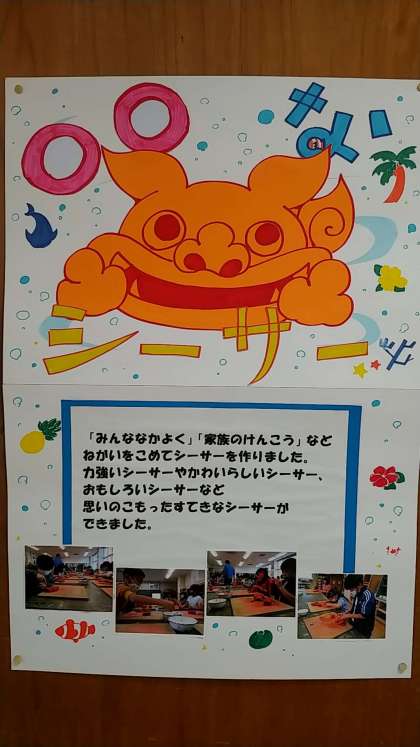 〇〇な
シーサー
「みんななかよく」「家族のけんこう」など
ねがいをこめてシーサーを作りました。
力強いシーサーやかわいらしいシーサー、
おもしろいシーサーなど
思いのこもったすてきなシーサーが
できました。